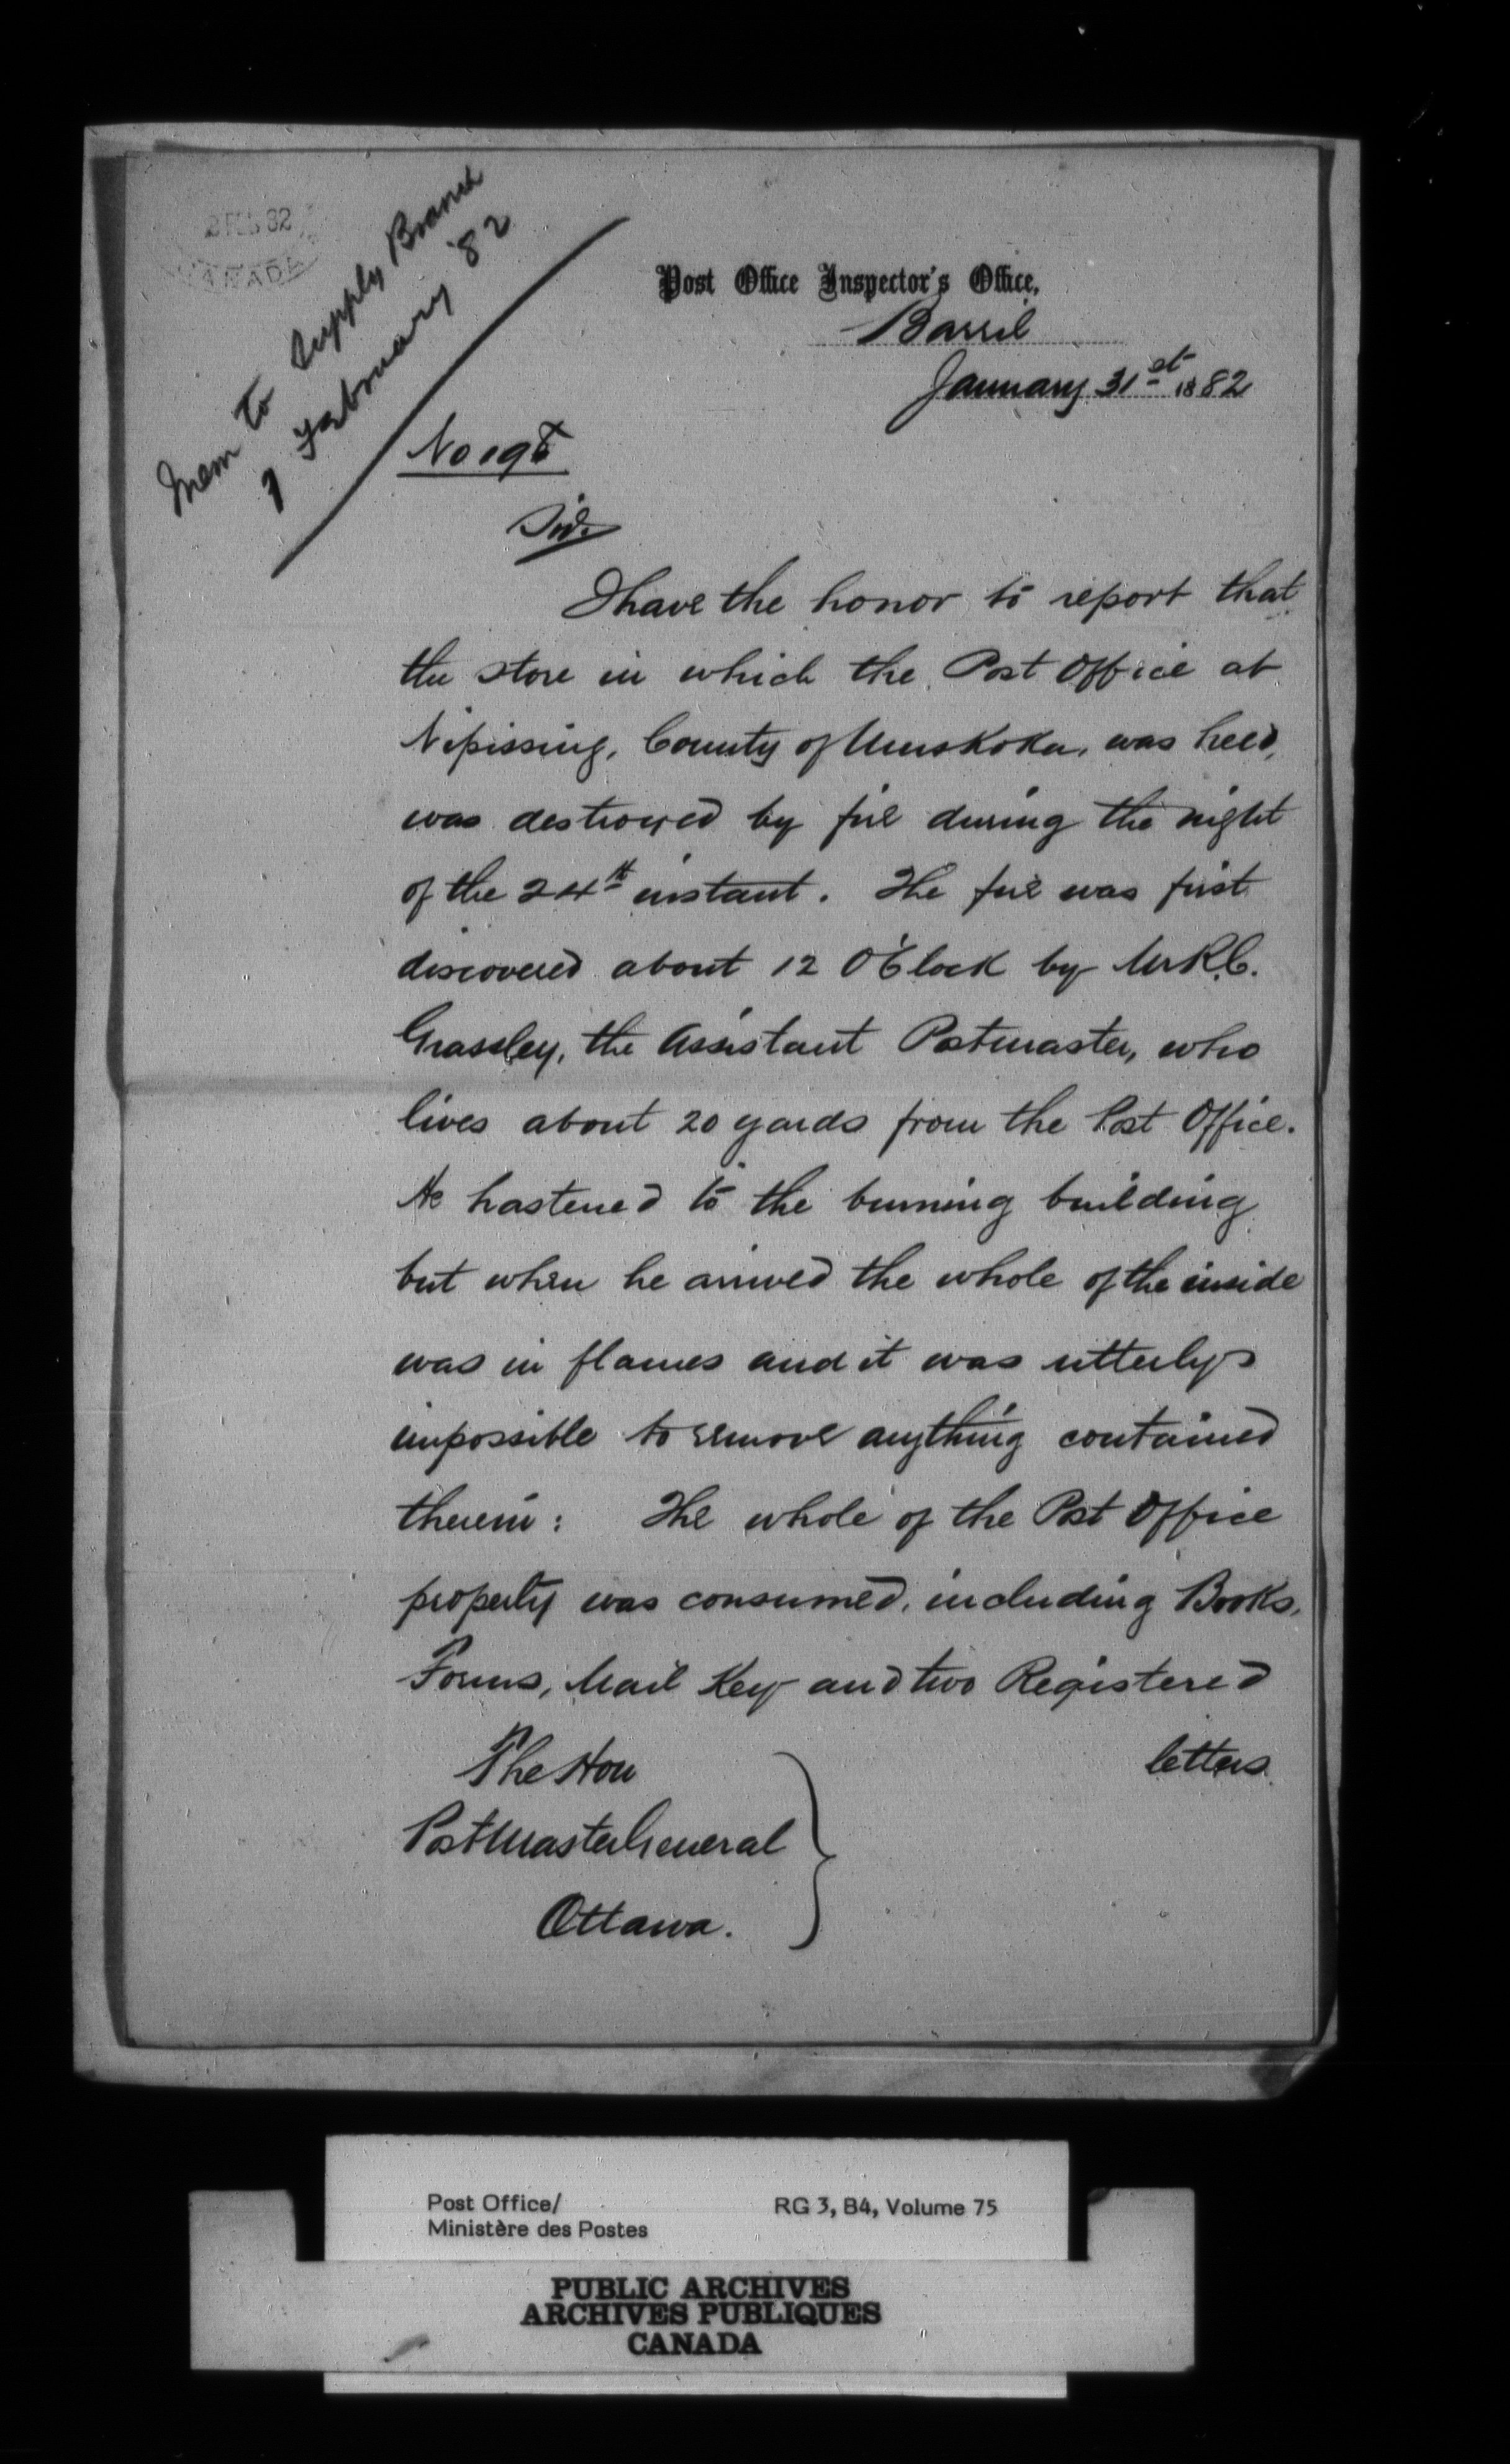 2 FEB 82
CANADA
Mem to Supply Branch
7 February '82
Post Office Inspector's Office,
Barrie
January 31st 1882
No 198
Sir.
I have the honor to report that
the store in which the Post Office at
Nipissing, County of Muskoka, was held,
was destroyed by fire during the night
of the 24th instant. The fire was first
discovered about 12 O'Clock by Mr R.C.
Grassley, the Assistant Postmaster, who
lives about 20 yards from the Post Office.
He hastened to the burning building
but when he arrived the whole of the inside
was in flames and it was utterly
impossible to remove anything contained
therein: The whole of the Post Office
property was consumed, including Books,
Forms, Mail Key and two Registered
letters.
The Hon
PostMaster General
Ottawa.
Post Office/
Ministère des Postes
RG 3, B4, Volume 75
PUBLIC ARCHIVES
ARCHIVES PUBLIQUES
CANADA